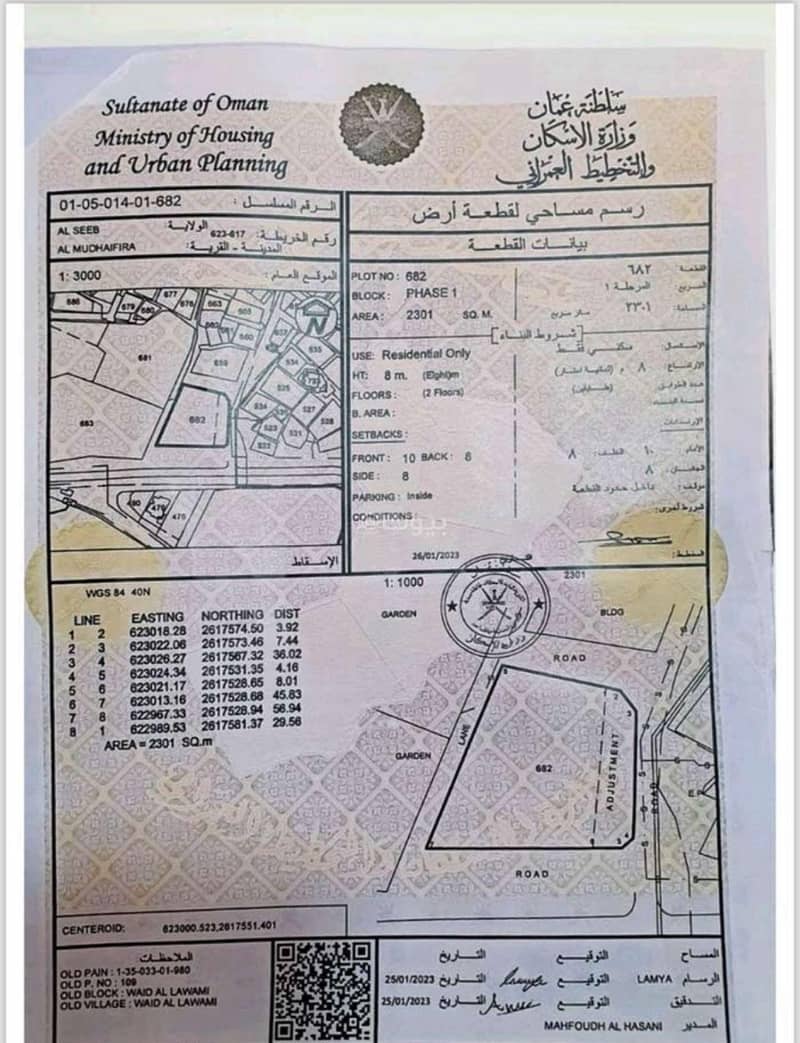 Sultanate of Oman
Ministry of Housing
and Urban Planning
سلطنة عمان
وزارة الإسكان
والتخطيط العمراني
01-05-014-01-682
الرقم المسلسل :
AL SEEB
الولاية :
AL MUDHAIFIRA
المدينة - القرية :
رقم الخريطة : 623-617
1: 3000
الموقع العام :
رسم مساحي لقطعة أرض
بيانات القطعة
PLOT NO : 682
القطعة: ٦٨٢
BLOCK : PHASE 1
المربع: المرحلة ١
AREA : 2301 SQ. M.
المساحة: ٢٣٠١ متر مربع
شروط البناء
USE: Residential Only
الاستعمال: سكني فقط
HT: 8 m. (Eight)m
الارتفاع: ٨ م (ثمانية امتار)
FLOORS : (2 Floors)
عدد الطوابق (طابقين)
B. AREA :
SETBACKS :
الارتدادات
FRONT : 10 BACK : 8
الأمام: ١٠ الخلف: ٨
SIDE : 8
الجانبان: ٨
PARKING : Inside
مواقف: داخل حدود القطعة
CONDITIONS :
شروط أخرى:
بيوت
26/01/2023
المخطط:
686
677
679
680
676
663
681
659
683
682
535
534
525
527
528
531
523
522
480
479
475
N
الإسقاط
WGS 84 40N
1: 1000
2301
LINE EASTING NORTHING DIST
1 2 623018.28 2617574.50 3.92
2 3 623022.06 2617573.46 7.44
3 4 623026.27 2617567.32 36.02
4 5 623024.34 2617531.35 4.16
5 6 623021.17 2617528.65 8.01
6 7 623013.16 2617528.68 45.83
7 8 622967.33 2617528.94 56.94
8 1 622989.53 2617581.37 29.56
AREA = 2301 SQ.m
GARDEN
BLDG
ROAD
LANE
GARDEN
682
ADJUSTMENT
ROAD
E.P
ROAD
CENTEROID: 623000.523,2617551.401
الملاحظات
OLD PAIN : 1-35-033-01-980
OLD P. NO : 109
OLD BLOCK : WAID AL LAWAMI
OLD VILLAGE : WAID AL LAWAMI
المساح التوقيع التاريخ
الرسام LAMYA التوقيع التاريخ 25/01/2023
التدقيق التوقيع التاريخ 25/01/2023
المدير MAHFOUDH AL HASANI